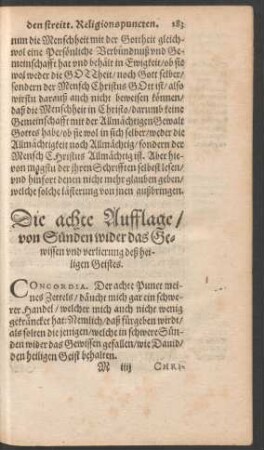 den streitt. Religionspuncten. 183
nun die Menschheit mit der Gottheit gleich-
wol eine Persönliche Verbündnuß vnd Ge-
meinschafft hat vnd behält in Ewigkeit/ ob sie
wol weder die GOTTheit/ noch Gott selber/
sondern der Mensch Christus GOtt ist/ also
wirstu darauß auch nicht beweisen können/
daß die Menschheit in Christo/ darumb keine
Gemeinschafft mit der Allmächtigen Gewalt
Gottes habe/ ob sie wol in sich selber/ weder die
Allmächtigkeit noch Allmächtig/ sondern der
Mensch CHristus Allmächtig ist. Aber hie-
von magstu der ihren Schrifften selbest lesen/
vnd hinfort denen nicht mehr glauben geben/
welche solche lästerung von jnen außbringen.
Die achte Aufflage/
von Sünden wider das Ge-
wissen vnd verlierung deß hei-
ligen Geistes.
CONCORDIA. Der achte Punct mei-
nes Zettels/ däucht mich gar ein schwe-
rer Handel/ welcher mich auch nicht wenig
getränckt hat: Nemlich/ daß fürgeben wirdt/
als solten die jenigen/ welche in schwere Sün-
den wider das Gewissen gefallen/ wie Dauid/
den heiligen Geist behalten.
M iiij CHRI-